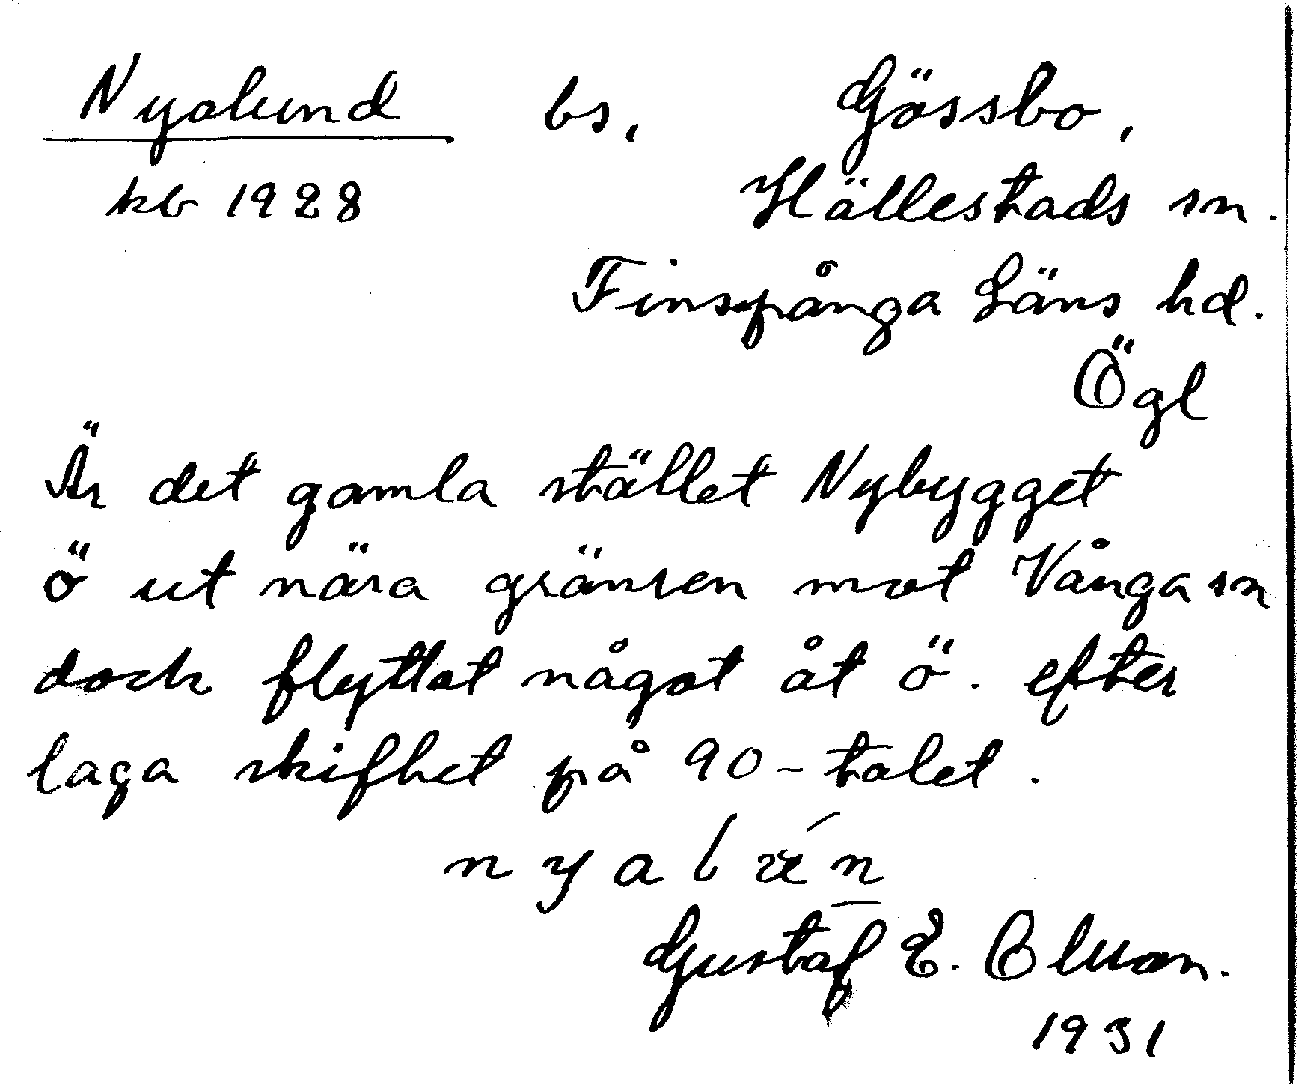 Nyalund bs. Gössbo,
kb 1928 Hällestads sn.
Finspånga Läns hd.
Ögl
Är det gamla stället Nybygget
ö ut nära gränsen mot Vånga sn
dock flyttat något åt ö. efter
laga skifhet på 90-talet.
nyal
Gustaf E. Olsson.
1931